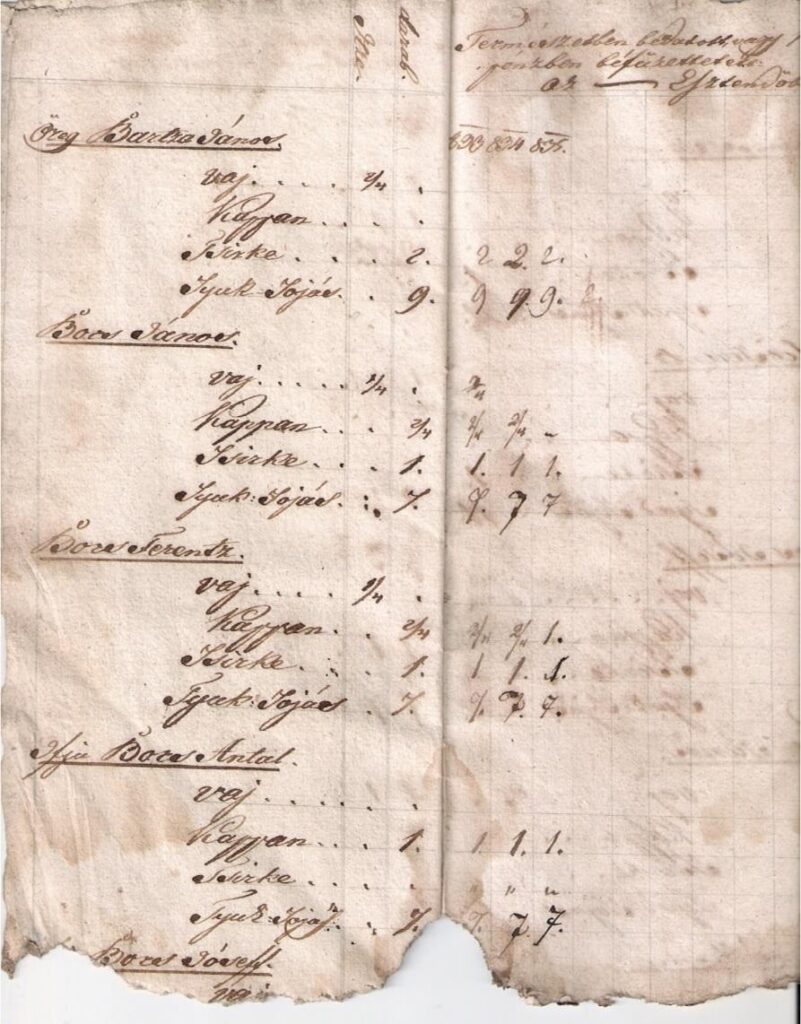 Itte. darab. Természetben béadott, vagy
penzben béfizettetett
az — Esztendőb
Öreg Bartza János. 833 834 835.
vaj. . . . . 2/4 .
Kappan. . . .
Tsirke. . . . 2. 2 2. 2.
Tyuk-Tojás. . 9. 9 9. 9.
Bors János.
vaj. . . . . 2/4 .
Kappan. . . 2/4 2/4 2/4 -
Tsirke. . . 1. 1. 1 1.
Tyuk-Tojás. 7. 7. 7 7
Bors Ferentz.
vaj. . . . 2/4 .
Kappan. . . 2/4 2/4 2/4 1.
Tsirke. . . 1. 1 1. 1.
Tyuk-Tojás . 7. 7. 7. 7.
Ifju Bors Antal.
vaj. . . . . .
Kappan. . . 1. 1 1. 1.
Tsirke. . . . " "
Tyuk-Tojás. . 7. 7. 7. 7.
Bors Jósef.
vaj